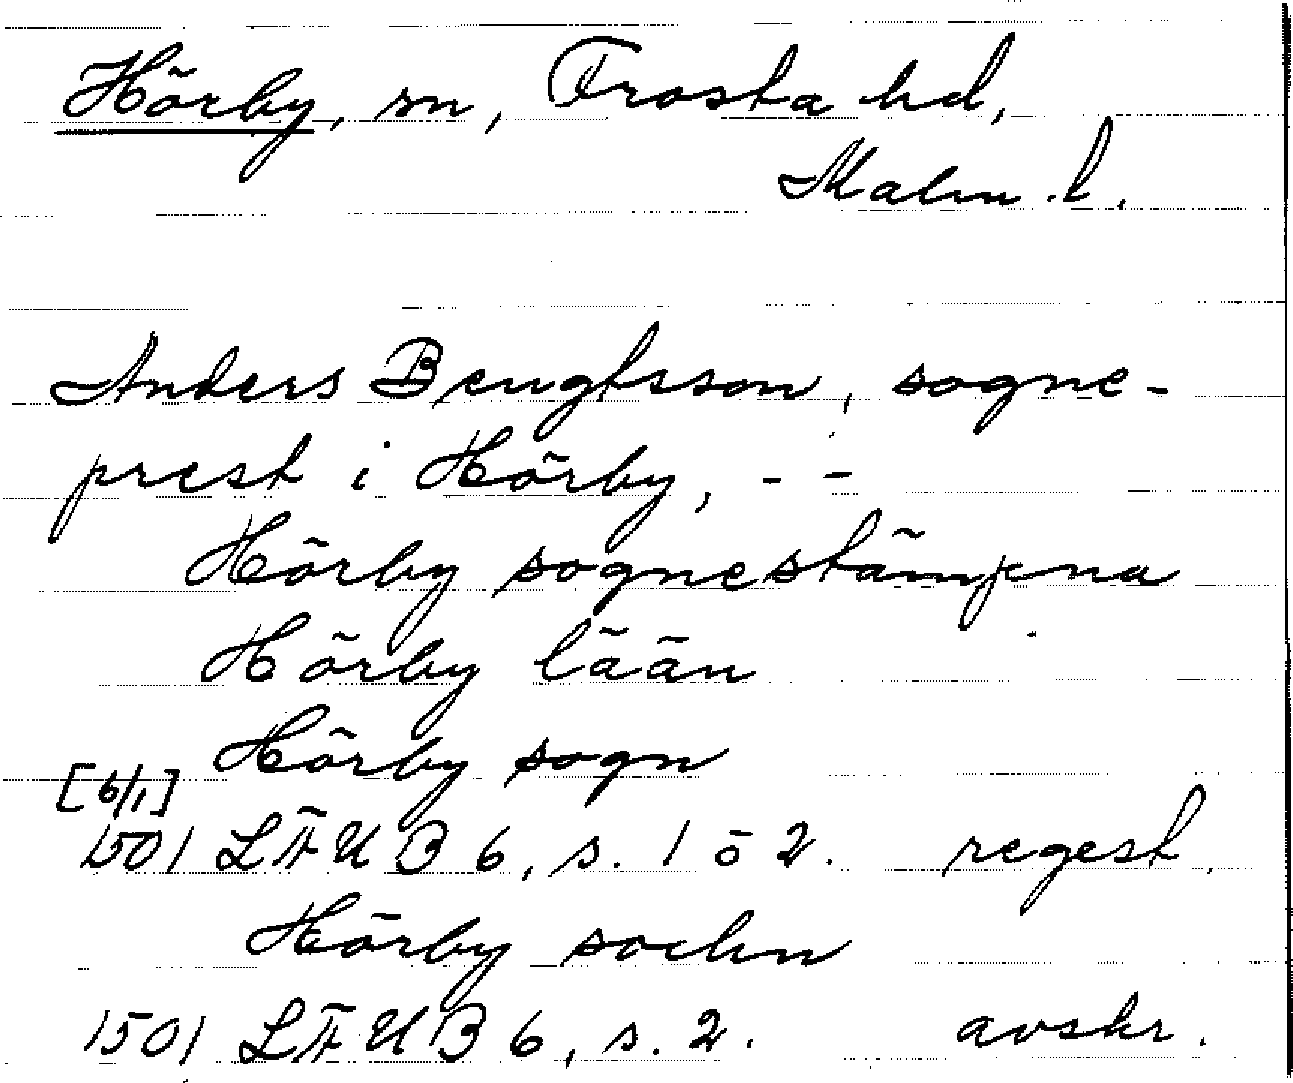 Hörby, sn, Frosta hd,
Malm. l.
Anders Bengtsson, sogne-
prest i Hörby, - -
Hörby sognestämpna
Hörby låån
Hörby sogn
[6/1]
1501 LÄUB 6, s. 1 o 2. regest.
Hörby sochn
1501 LÄUB 6, s. 2. avskr.